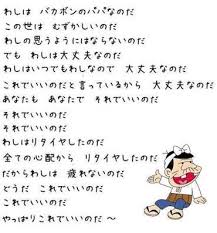 わしは バカボンのパパなのだ
この世は むずかしいのだ
わしの思うようにはならないのだ
でも わしは大丈夫なのだ
わしはいつでもわしなので 大丈夫なのだ
これでいいのだと言っているから 大丈夫なのだ
あなたも あなたで それでいいのだ
それでいいのだ
それでいいのだ
わしはリタイヤしたのだ
全ての心配から リタイヤしたのだ
だからわしは 疲れないのだ
どうだ これでいいのだ
これでいいのだ
やっぱりこれでいいのだ ～